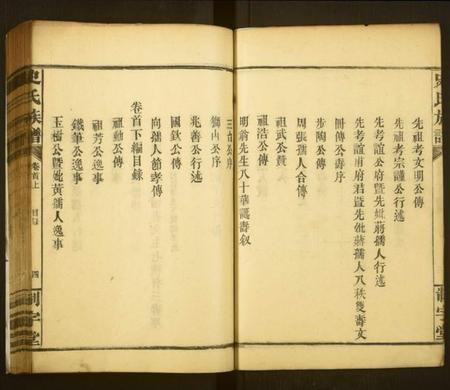 先祖考文明公傳
先祖考宗謹公行述
先考誼公府暨先妣蔣孺人行述
先考誼甫府君暨先妣蔣孺人八秩雙壽文
冊傳公壽序
步陶公傳
周張孺人合傳
祖武公贊
祖浩公傳
明翁先生八十華誕壽叙
三台公序
獅山公序
兆善公行述
國欽公傳
向孺人節孝傳
卷首下編目錄
祖勳公傳
祖芳公逸事
鐵筆公逸事
玉樹公暨妣黄孺人逸事
氏族譜
卷首上
目錄
四